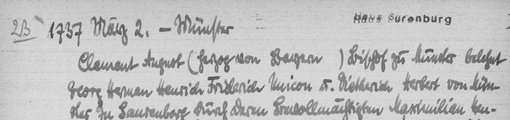 2B 1737 März 2. – Münster Haus Surenburg
Clement August (Herzog von Bayern) Bischof zu Münster belehnt
Georg Herman Henrich Friderich Unicon v. Dietherich Herbert von Mün-
ster zu Surenborg durch deren Bevollmächtigten Maximilian Hen-